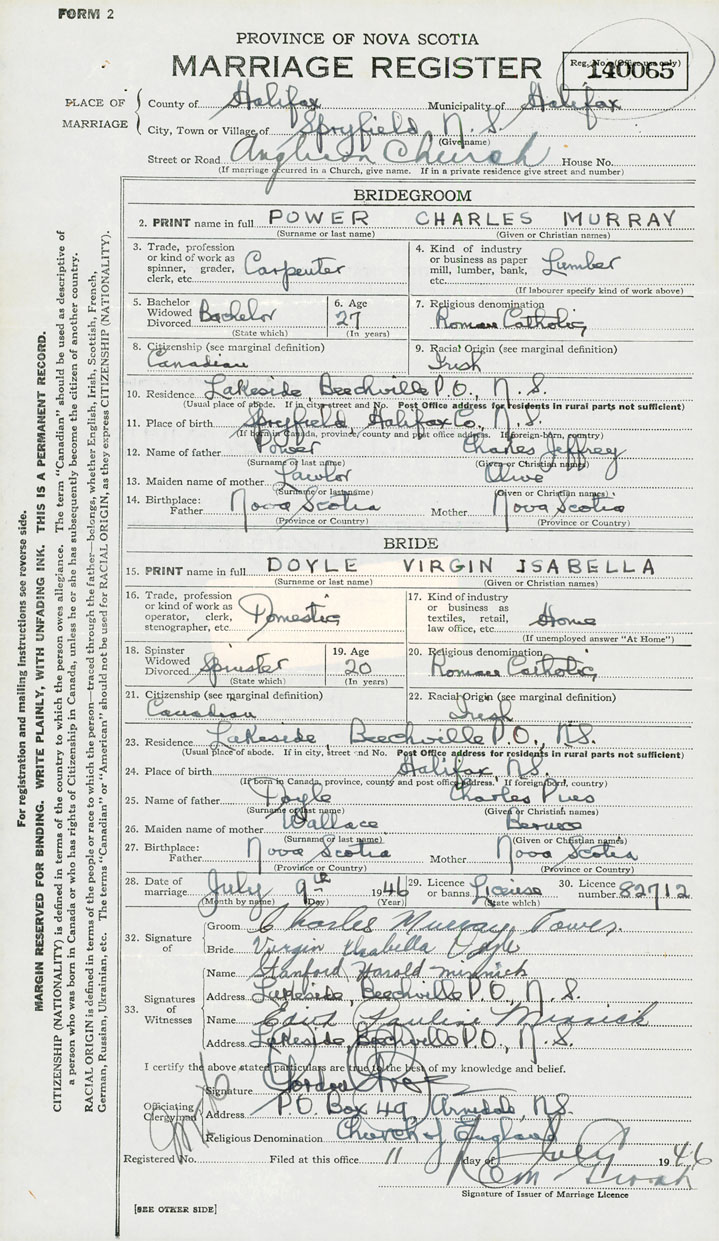 FORM 2
PROVINCE OF NOVA SCOTIA
MARRIAGE REGISTER
Reg. No. (Office use only)
140065
PLACE OF MARRIAGE
County of Halifax Municipality of Halifax
City, Town or Village of Spryfield N.S.
(Give name)
Street or Road Anglican Church House No.
(If marriage occurred in a Church, give name. If in a private residence give street and number)
BRIDEGROOM
2. PRINT name in full POWER CHARLES MURRAY
(Surname or last name) (Given or Christian names)
3. Trade, profession or kind of work as spinner, grader, clerk, etc. Carpenter
4. Kind of industry or business as paper mill, lumber, bank, etc. Lumber
(If labourer specify kind of work above)
5. Bachelor Widowed Divorced Bachelor
(State which)
6. Age 27
(In years)
7. Religious denomination
Roman Catholic
8. Citizenship (see marginal definition)
Canadian
9. Racial Origin (see marginal definition)
Irish
10. Residence Lakeside, Beechville P.O., N.S.
(Usual place of abode. If in city, street and No. Post Office address for residents in rural parts not sufficient)
11. Place of birth Spryfield, Halifax Co., N.S.
(If born in Canada, province, county and post office address. If foreign-born, country)
12. Name of father Power Charles Jeffrey
(Surname or last name) (Given or Christian names)
13. Maiden name of mother Lawlor Olive
(Surname or last name) (Given or Christian names)
14. Birthplace: Father Nova Scotia Mother Nova Scotia
(Province or Country) (Province or Country)
BRIDE
15. PRINT name in full DOYLE VIRGIN ISABELLA
(Surname or last name) (Given or Christian names)
16. Trade, profession or kind of work as operator, clerk, stenographer, etc. Domestic
17. Kind of industry or business as textiles, retail, law office, etc. Home
(If unemployed answer "At Home")
18. Spinster Widowed Divorced Spinster
(State which)
19. Age 20
(In years)
20. Religious denomination
Roman Catholic
21. Citizenship (see marginal definition)
Canadian
22. Racial Origin (see marginal definition)
Irish
23. Residence Lakeside, Beechville P.O., N.S.
(Usual place of abode. If in city, street and No. Post Office address for residents in rural parts not sufficient)
24. Place of birth Halifax, N.S.
(If born in Canada, province, county and post office address. If foreign-born, country)
25. Name of father Doyle Charles Pius
(Surname or last name) (Given or Christian names)
26. Maiden name of mother Wallace
(Surname or last name) (Given or Christian names)
27. Birthplace: Father Nova Scotia Mother Nova Scotia
(Province or Country) (Province or Country)
28. Date of marriage July 9th 1946
(Month by name) (Day) (Year)
29. Licence or banns License
(State which)
30. Licence number 82712
32. Signature of
Groom Charles Murray Power
Bride Virgin Isabella Doyle
33. Signatures of Witnesses
Name Stanford Harold Minnick
Address Lakeside, Beechville P.O., N.S.
Name Edith Pauline Minnick
Address Lakeside, Beechville P.O., N.S.
I certify the above stated particulars are true to the best of my knowledge and belief.
Officiating Clergyman
Signature Gordon
Address P.O. Box 49 Armdale, N.S.
Religious Denomination Church of England
Registered No. Filed at this office 11 day of July 1946
Signature of Issuer of Marriage Licence
[SEE OTHER SIDE]
For registration and mailing instructions see reverse side.
MARGIN RESERVED FOR BINDING. WRITE PLAINLY, WITH UNFADING INK. THIS IS A PERMANENT RECORD.
CITIZENSHIP (NATIONALITY) is defined in terms of the country to which the person owes allegiance. The term "Canadian" should be used as descriptive of
a person who was born in Canada or who has rights of Citizenship in Canada, unless he or she has subsequently become the citizen of another country.
RACIAL ORIGIN is defined in terms of the people or race to which the person—traced through the father—belongs, whether English, Irish, Scottish, French,
German, Russian, Ukrainian, etc. The terms "Canadian" or "American" should not be used for RACIAL ORIGIN, as they express CITIZENSHIP (NATIONALITY).